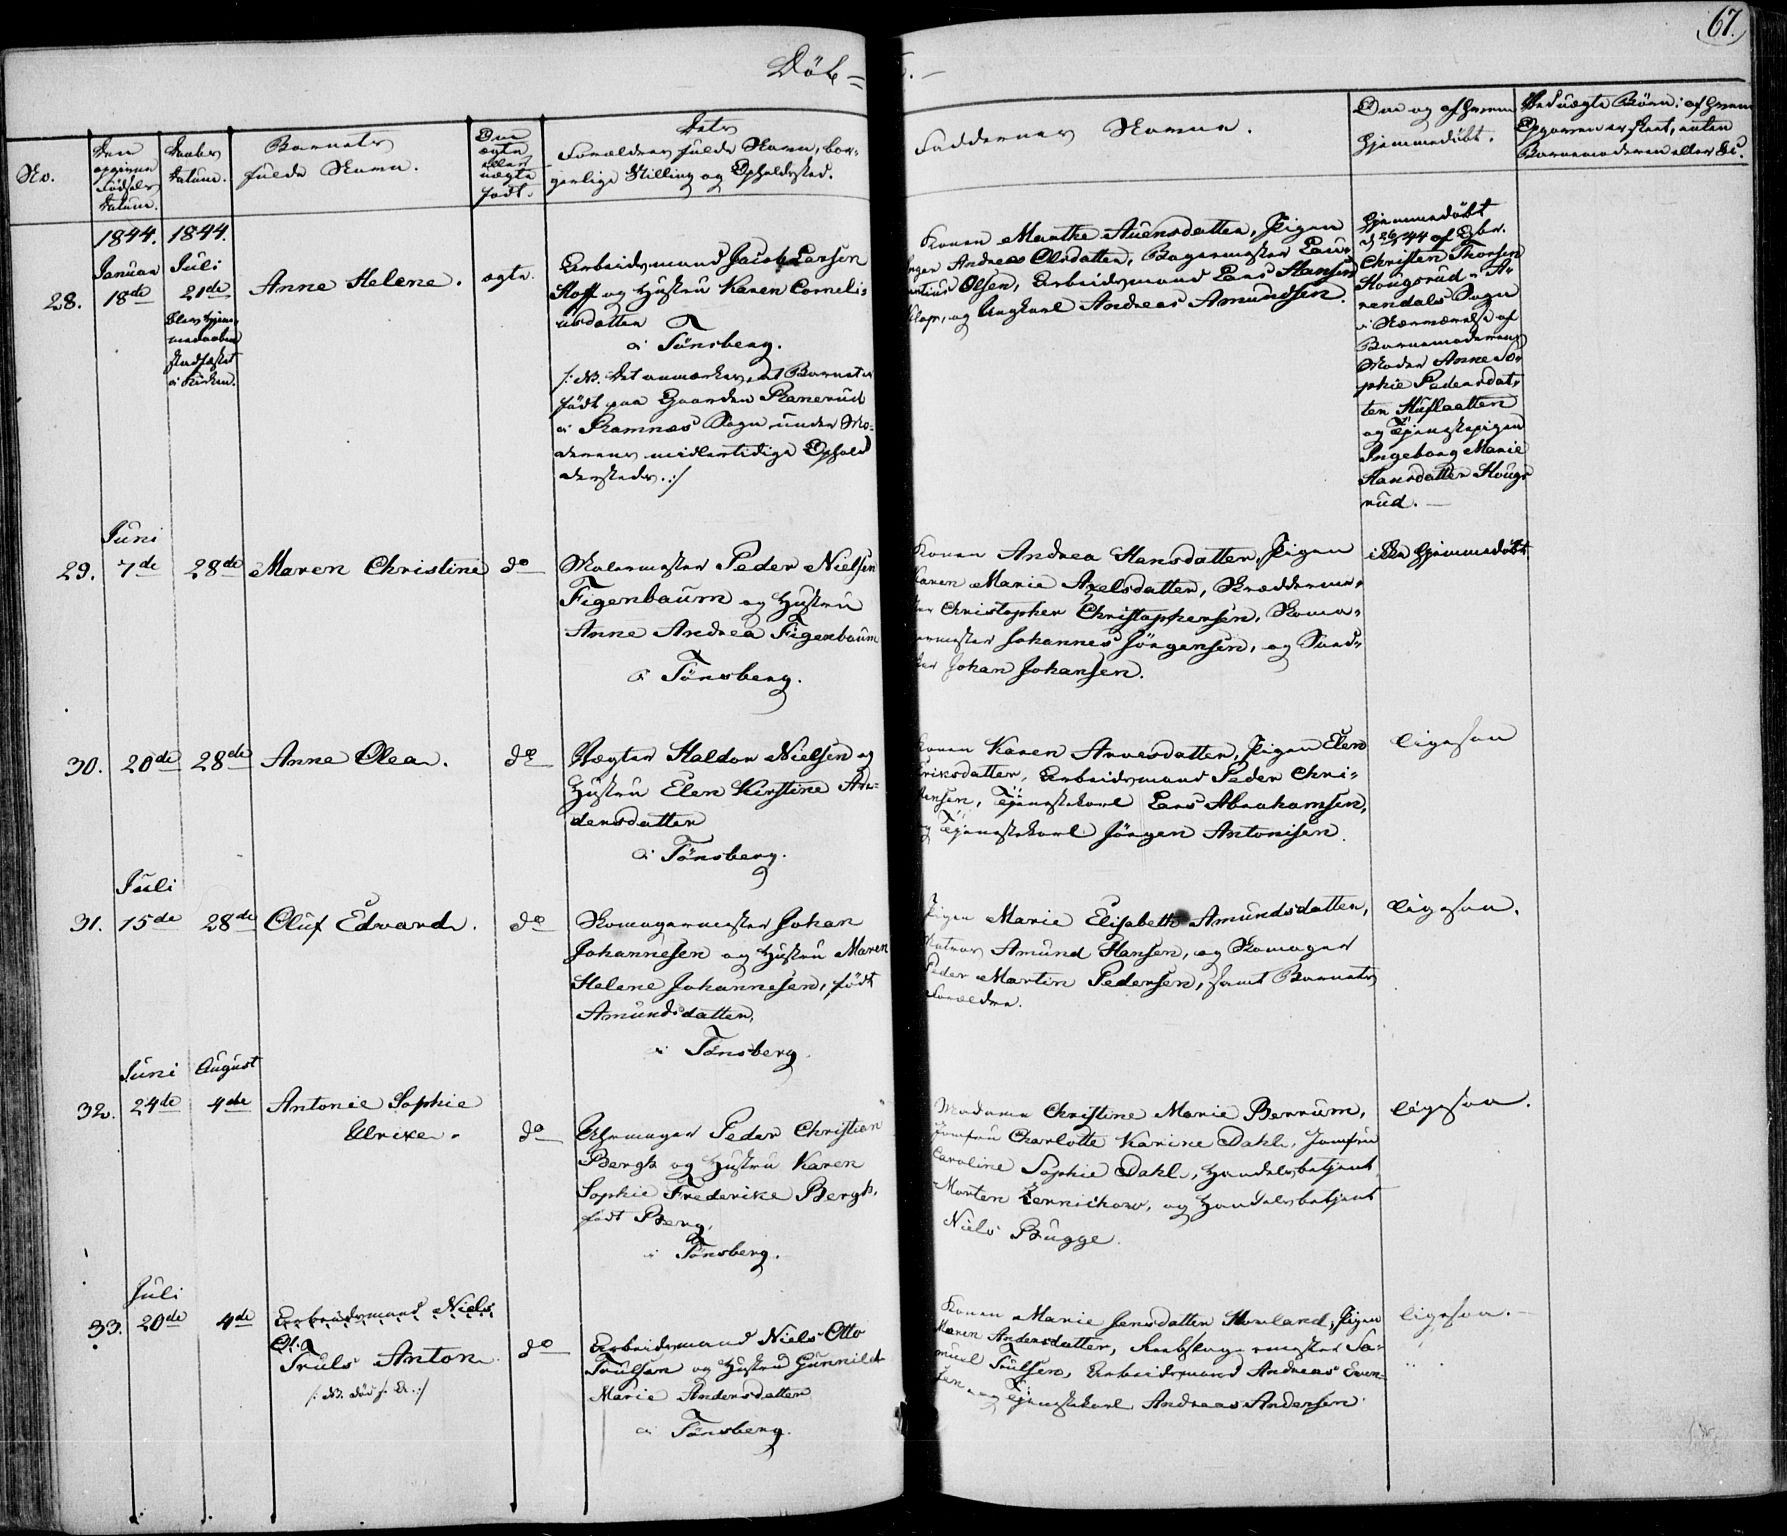 67.
Döb-
No.
Den
opgivne
Fødsels
Datum.
Daabs
Datum.
Barnets
fulde Navn.
Om
ægte
eller
uægte
født.
Dets
Forældres fulde Navn, bor-
gerlige Stilling og Opholdssted.
Faddernes Navne.
Om og af hvem
hjemmedøbt.
Ved uægte Børn: af hvem
Opgaven er skeet, enten
Barnemoderen eller &c.
28.
1844.
Januar
18de
1844.
Juli
21de
Blev hjem-
medaaben
stadfæstet
i Kirken.
Anne Helene.
ægte.
Arbeidsmand Jacob Larsen
Hoff og Hustru Karen Corneli-
usdatter
i Tönsberg.
/: NB. Det anmærkes, at Barnet er
født paa Gaarden Ranerud
i Ramnæs Sogn under Mo-
derens midlertidige Ophold
dersteds. :/
Konen Marthe Auensdatter, Pigen
Inger Andrea Olsdatter, Bagermester Lau-
rentius Olsen, Arbeidsmand Lars Hansen
og Ungkarl Andreas Amundsen.
Hjemmedøbt
d. 26/1 44 af Gbr.
Christen Thorsen
Hougsrud i A-
rendals Sogn
i Nærværelse af
Barnemoderens
Moder Anne So-
phie Pedersdat-
ter Huflaatten
og Tjenestepigen
Ingeborg Marie
Hansdatter Hougs-
rud. —
29.
Juni
7de
28de
Maren Christine
do
Malermester Peder Nielsen
Figenbaum og Hustru
Anne Andrea Figenbaum
i Tönsberg.
Konen Andrea Hansdatter, Pigen
Karen Marie Axelsdatter, Skrædderme-
ster Christopher Christophersen, Skoma-
germester Johannes Jörgensen, og Sned-
ker Johan Johansen.
ikke hjemmedøbt
30.
20de
28de
Anne Olea.
do
Vægter Haldor Nielsen og
Hustru Elen Kirstine An-
dersdatter
i Tönsberg.
Konen Karen Arnesdatter, Pigen Elen
Eriksdatter, Arbeidsmand Peder Chri-
stensen, Tjenestekarl Lars Abrahamsen,
og Tjenestekarl Jörgen Antonisen.
ligesaa
31.
Juli
15de
28de
Oluf Edvard.
do
Skomagermester Johan
Johannesen og Hustru Maren
Helene Johannesen, født
Amundsdatter,
i Tönsberg.
Pigen Marie Elisabeth Amundsdatter,
Matros Amund Hansen, og Skomager
Peder Martin Pedersen, samt Barnets
Forældre.
ligesaa.
32.
Juni
24de
August
4de
Antonie Sophie
Ulrike.
do
Uhrmager Peder Christian
Bergh og Hustru Karen
Sophie Frederike Bergh,
født Berg,
i Tönsberg.
Madame Christine Marie Berrum,
Jomfru Charlotte Karine Dahl, Jomfru
Caroline Sophie Dahl, Handelsbetjent
Morten Zernichow, og Handelsbetjent
Niels Bugge.
ligesaa.
33.
Juli
20de
4de
Arbeidsmand Niels
Ot
Truls Anton.
do
Arbeidsmand Niels Otto
Trulsen og Hustru Gunnild
Marie Andersdatter
i Tönsberg.
Konen Marie Jensdatter Howland, Pigen
Maren Andersdatter, Rebslagermester Sa-
muel Trulsen, Arbeidsmand Andreas Even-
sen, og Tjenestekarl Andreas Andersen.
ligesaa. —